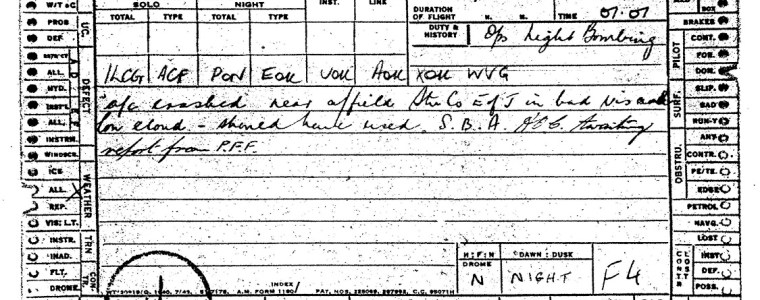 W/T &C. SOLO NIGHT INST. LINK DURATION OF FLIGHT H. M. TIME 07.07 BOX
PROB. TOTAL TYPE TOTAL TYPE BRAKES
DEF. U/C. DUTY & HISTORY Ops Night Bombing CONT.
PILOT FOR.
ALL. ILCG ACF PON EOK UOK AOK XOK WVG DOM.
HYD. DEFECT a/c crashed near in bad vis and SURF. SLIP.
INST'L BAD
ALL. low cloud - should have used S.B.A. Awaiting RUN-T
INSTRM. report from P.F.F. ANT
WINDSCR. OBSTRU. CONTR.
ICE PE/TE.
ALL. WEATHER EDGE
REP. PETROL
VIS: L.T. NAVG.
INSTR. TRN LOST
INAD. H:F:N DAWN : DUSK CONT LOST INST
FLT. CON. TR. DROME N NIGHT F4 DEF.
DROME INDEX A.M. FORM 1180/ PAT. NOS. POSS.